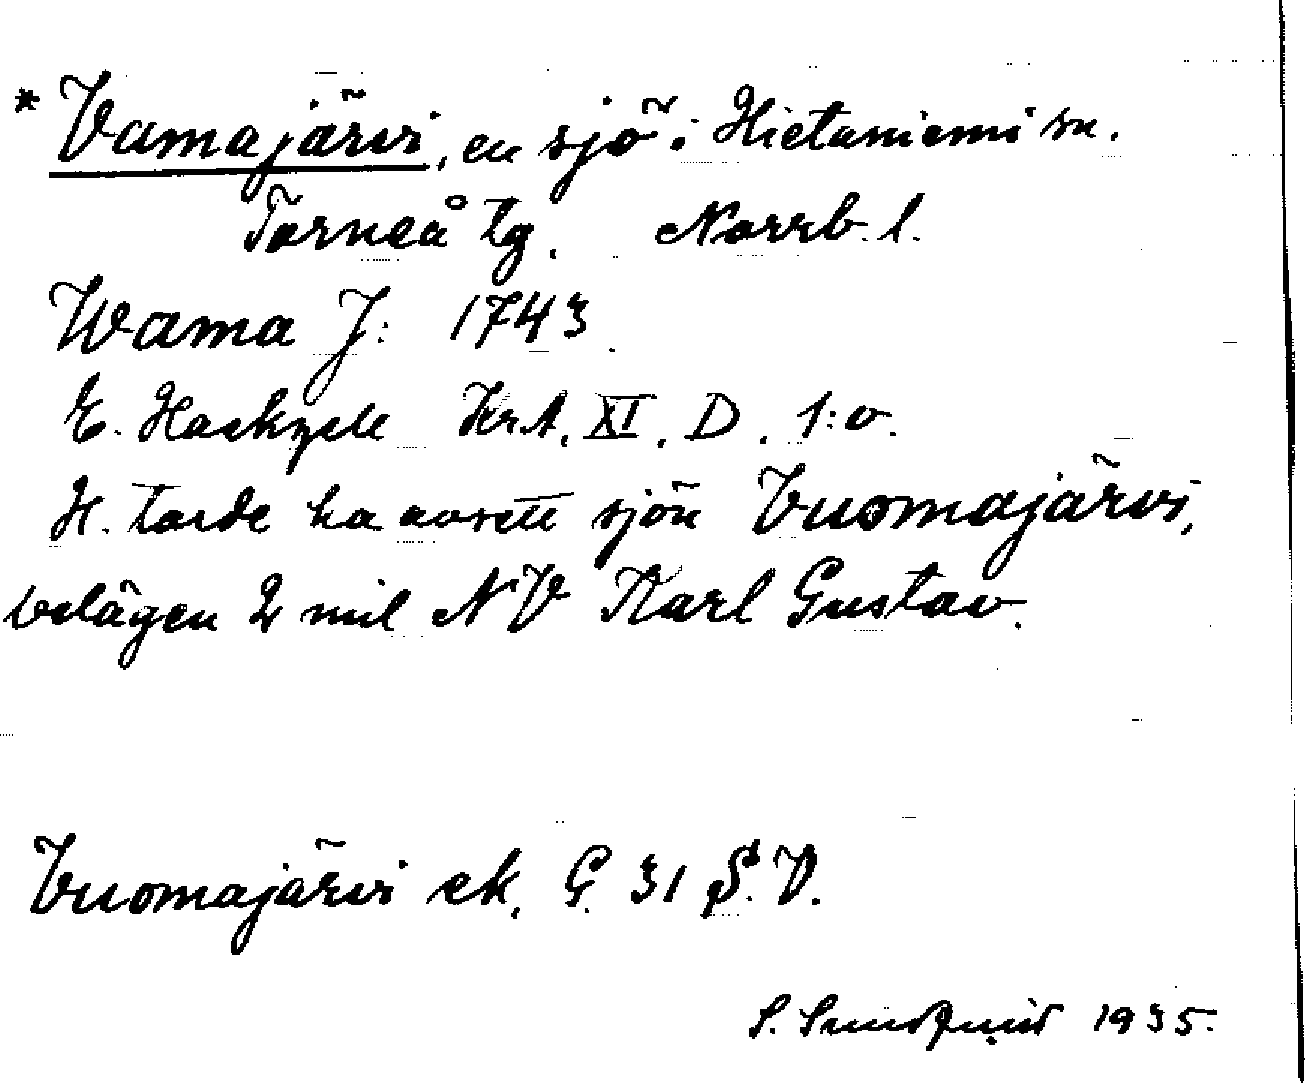 * Vamajärvi, en sjö i Hietaniemi sn.
Torneå tg. Norrb. l.
Wama J: 1743
E. Hackzell KrA. XI. D. 1:o.
H. torde ha avsett sjön Vuomajärvi,
belägen 2 mil NV Karl Gustav.
Vuomajärvi ek. G. 31 S.V.
S. Sundquist 1935.